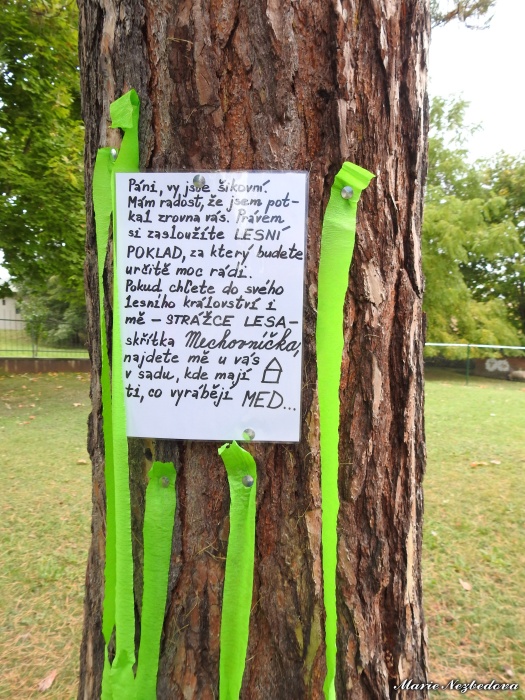 Páni, vy jste šikovní.
Mám radost, že jsem pot-
kal zrovna vás. Právem
si zasloužíte LESNÍ
POKLAD, za který budete
určitě moc rádi.
Pokud chľete do svého
lesního království i
mě – STRÁŽCE LESA –
skřítka Mechovníčka,
najdete mě u vás
v sadu, kde mají
ti, co vyrábějí MED...
Marie Nezbedova